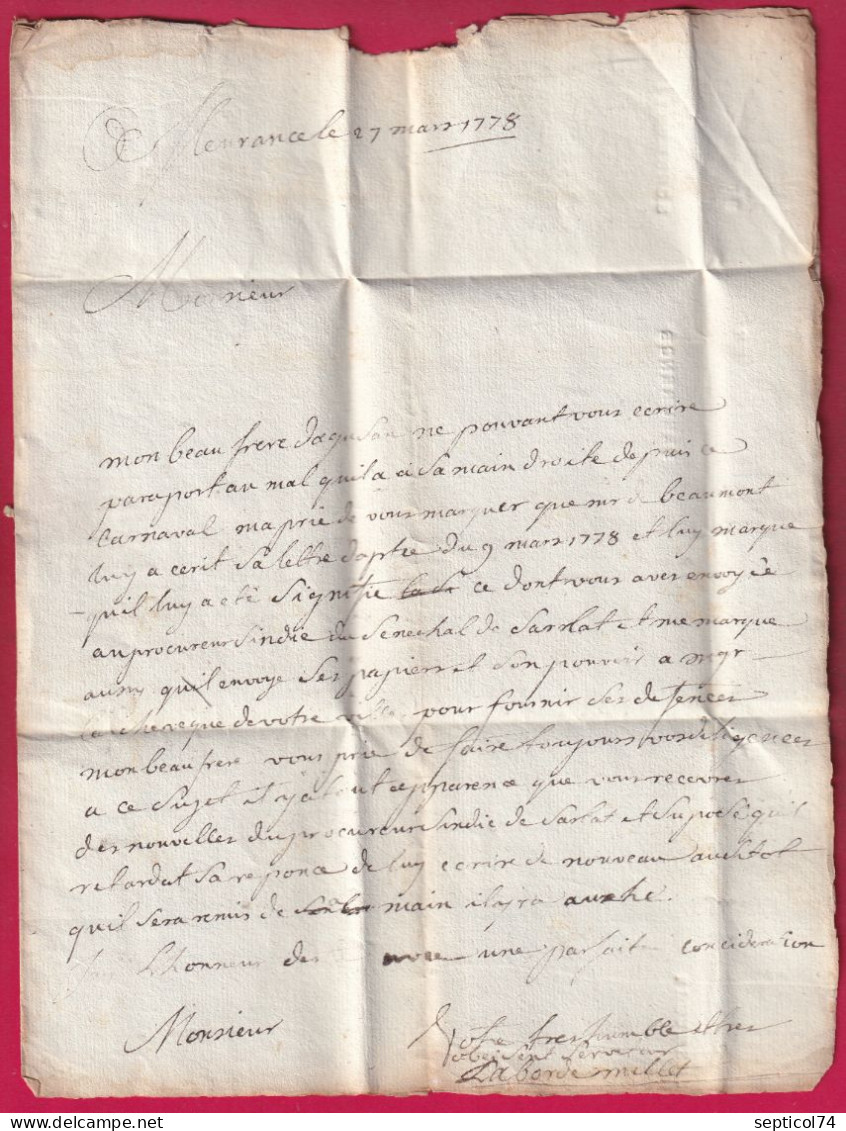 De fleurance le 27 mars 1778
Monsieur
mon beau frere dagusan ne pouvant vous ecrire
paraport au mal quil a a sa main droite depuis ce
Carnaval ma prie de vous marquer que mr de beaumont
luy a ecrit sa lettre daptee du 9 mars 1778 et luy marque
quil luy a eté signifie ce dont vous aves envoyée
au procureur sindic du senechal de sarlat et me marque
aussy quil envoye ses papiers et son pouvoir a mgr
larcheveque de votre ville pour fournir ses defences
mon beau frere vous prie de faire toujours vos deligences
a ce sujet il y a tout apparence que vous recevres
des nouvelles du procureur sindic de sarlat et suposé quil
retardat sa reponce de luy ecrire de nouveau ausitot
quil sera remis de main il ira auche.
Lhonneur avec une parfaite concideration
Monsieur
Votre tres humble et tres
obeisent serviteur
Laborde millet
septicol74